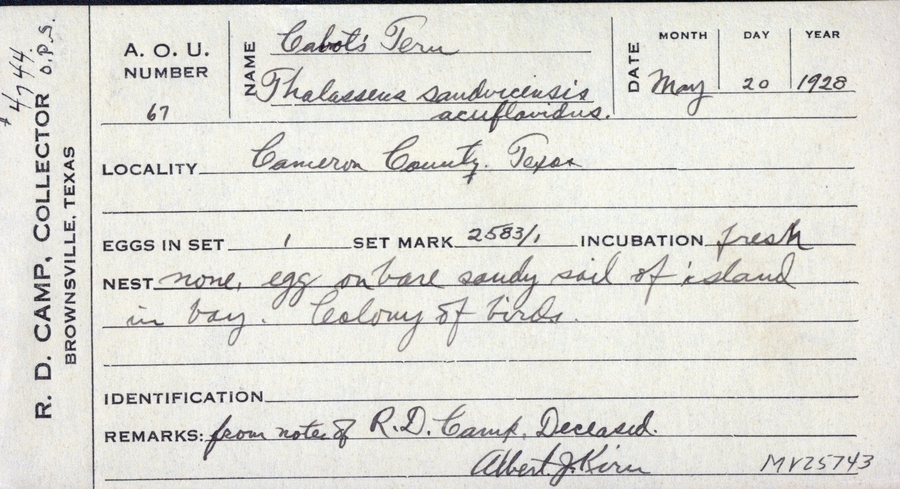 # 4/744. O.P.S.
R. D. CAMP, COLLECTOR
BROWNSVILLE, TEXAS
A. O. U.
NUMBER
67
NAME Cabot's Tern
Thalasseus sandvicensis
acuflavidus.
DATE MONTH DAY YEAR
May 20 1928
LOCALITY Cameron County. Texas
EGGS IN SET 1 SET MARK 2583/1 INCUBATION fresh
NEST none, egg on bare sandy soil of island
in bay. Colony of birds.
IDENTIFICATION
REMARKS: from notes of R.D. Camp. Deceased.
Albert J. Kirn
MV25743